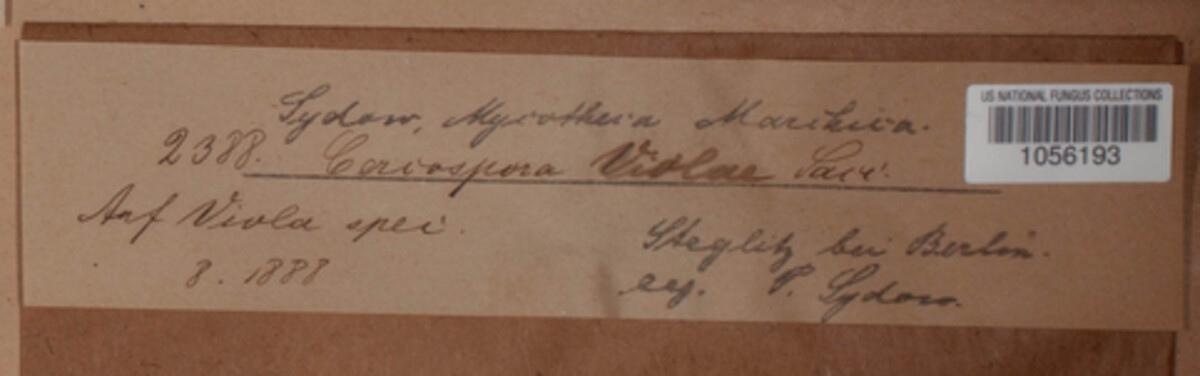 Sydow, Mycotheca Marchica.
2388. Cercospora Violae Sacc.
Auf Viola spec.
8. 1888
Steglitz bei Berlin.
leg. P. Sydow.
US NATIONAL FUNGUS COLLECTIONS
1056193